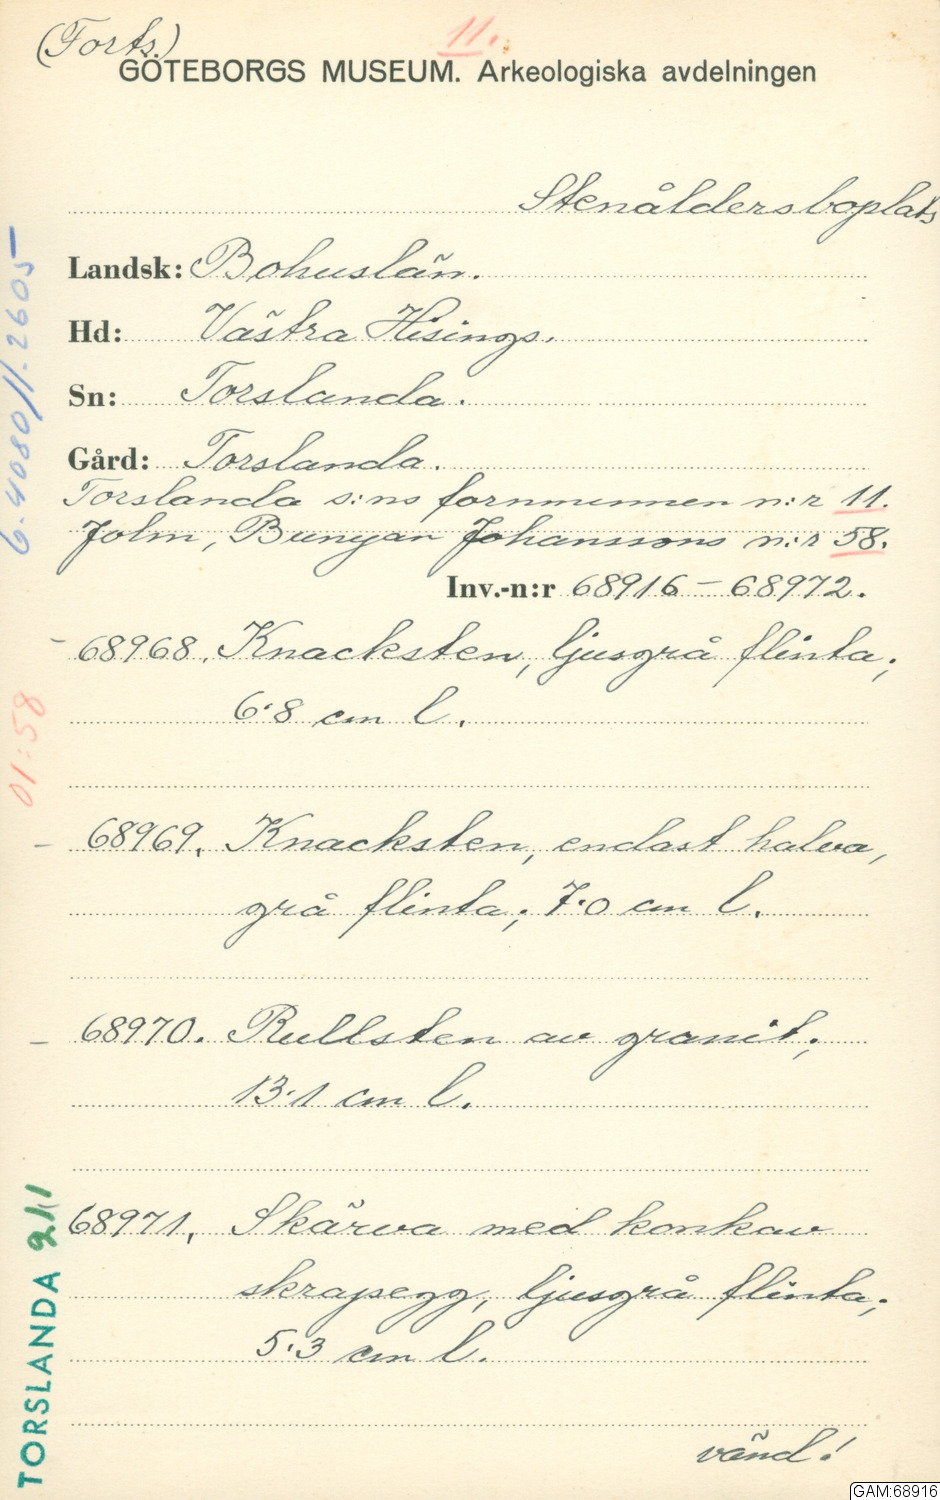 (Forts.)
11.
GÖTEBORGS MUSEUM. Arkeologiska avdelningen
Stenåldersboplats
Landsk: Bohuslän.
Hd: Västra Hisings.
Sn: Torslanda.
Gård: Torslanda.
Torslanda s:ns fornminnen n:r 11.
John, Bunyan Johanssons n:r 58.
Inv.-n:r 68916 – 68972.
68968. Knacksten, ljusgrå flinta;
6.8 cm l.
68969. Knacksten, endast halva,
grå flinta; 7.0 cm l.
68970. Rullsten av granit;
13.1 cm l.
68971. Skärva med konkav
skrapegg, ljusgrå flinta;
5.3 cm l.
vänd!
6.4080//.2605
01:58
TORSLANDA 211
GAM:68916